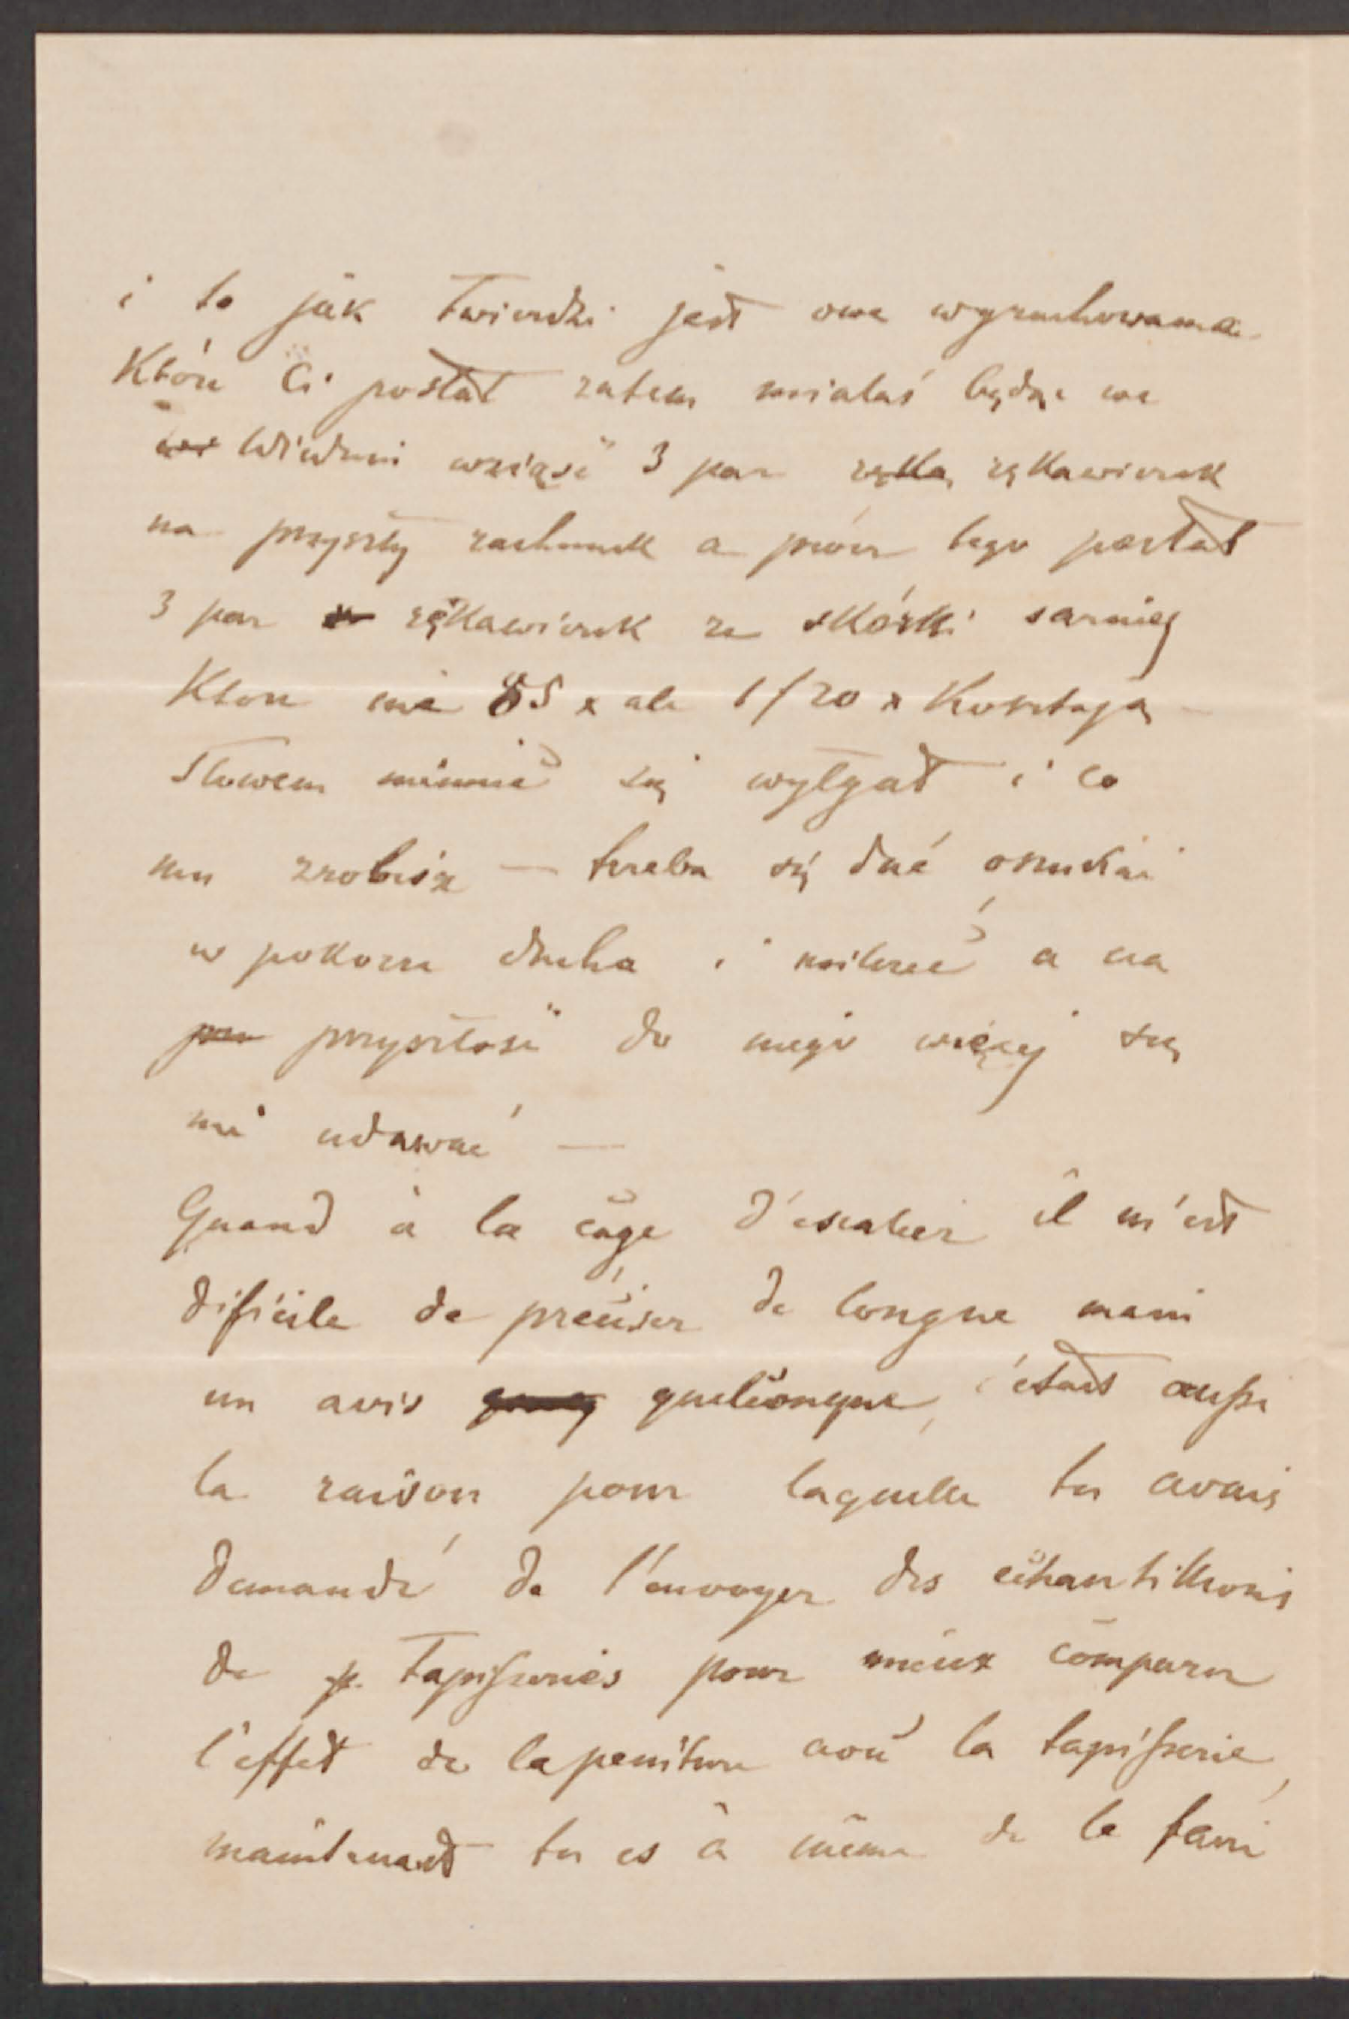 i to jak twierdzi jest owe wyrachowanie
które Ci posłał zatem miałaś będąc we
we Wiedniu wziąść 3 par ręka, rękawiczek
na przyszły rachunek a prócz tego posłał
3 par rękawiczek ze skórki sarniej
które nie 85 x ale 1 f 20 x kosztują —
Słowem umie się wyłgać i co
mu zrobisz — trzeba się dać oszukać
w pokorze ducha i milczeć a na
prz przyszłość do niego więcej się
nie udawać —
Quand à la cage d'escalier il m'est
dificile de préciser de longue main
un avis quelconque, c'était aussi
la raison pour laquelle tu avais
demandé de t'envoyer des échantillons
de p. tapisseries pour mieux comparer
l'effet de la peinture avec la tapisserie,
maintenant tu es à même de le faire